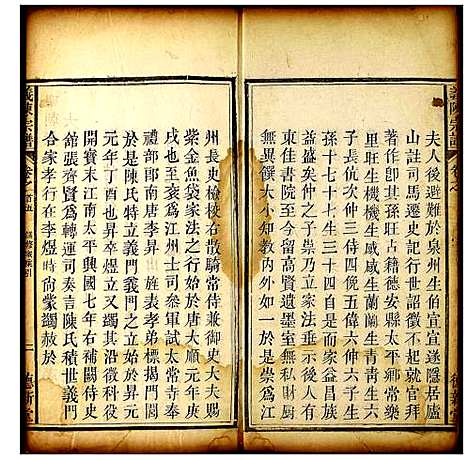 夫人後避難於泉州生伯宣宣遂隱居廬
山註司馬遷史記行世詔徵不起就官拜
於此即其孫旺占籍德安縣太平鄉常樂
里旺生機機生感感生蘭蘭生青青生六
子長伉次仲三十四侃五偉六仲伉
孫十七十三十四俱益昌族
至 而成家益昌則
益盛矣仲之子崇乃立家法垂示後人有
至敎存至今留高賢遺墨室無私廚
無異僎大小知敎內外如一於是崇爲江
州長史檢校右散騎常侍兼御史大夫賜
紫金魚袋家法之行始於唐大順元年庚
戌也至袞爲江州士司參軍試太常寺奉
禮部郎南唐李昇 旌表孝弟標揭門
於是陳氏特立義門義門之立始於昇元
元年丁酉也昇卒煜立又蠲其沿徵科役
開寶末江南太平興國七年右補闕侍史
館張齊賢爲轉運司奏言陳氏積世義門
合家孝行在李煜時尙蒙蠲赦於
義陳宗譜
卷之首五
德新堂